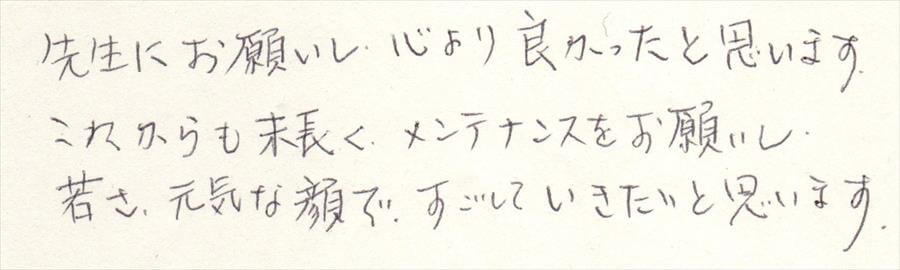 先生にお願いし、心より良かったと思います。
これからも末長く、メンテナンスをお願いし、
若さ、元気な顔で、すごしていきたいと思います。